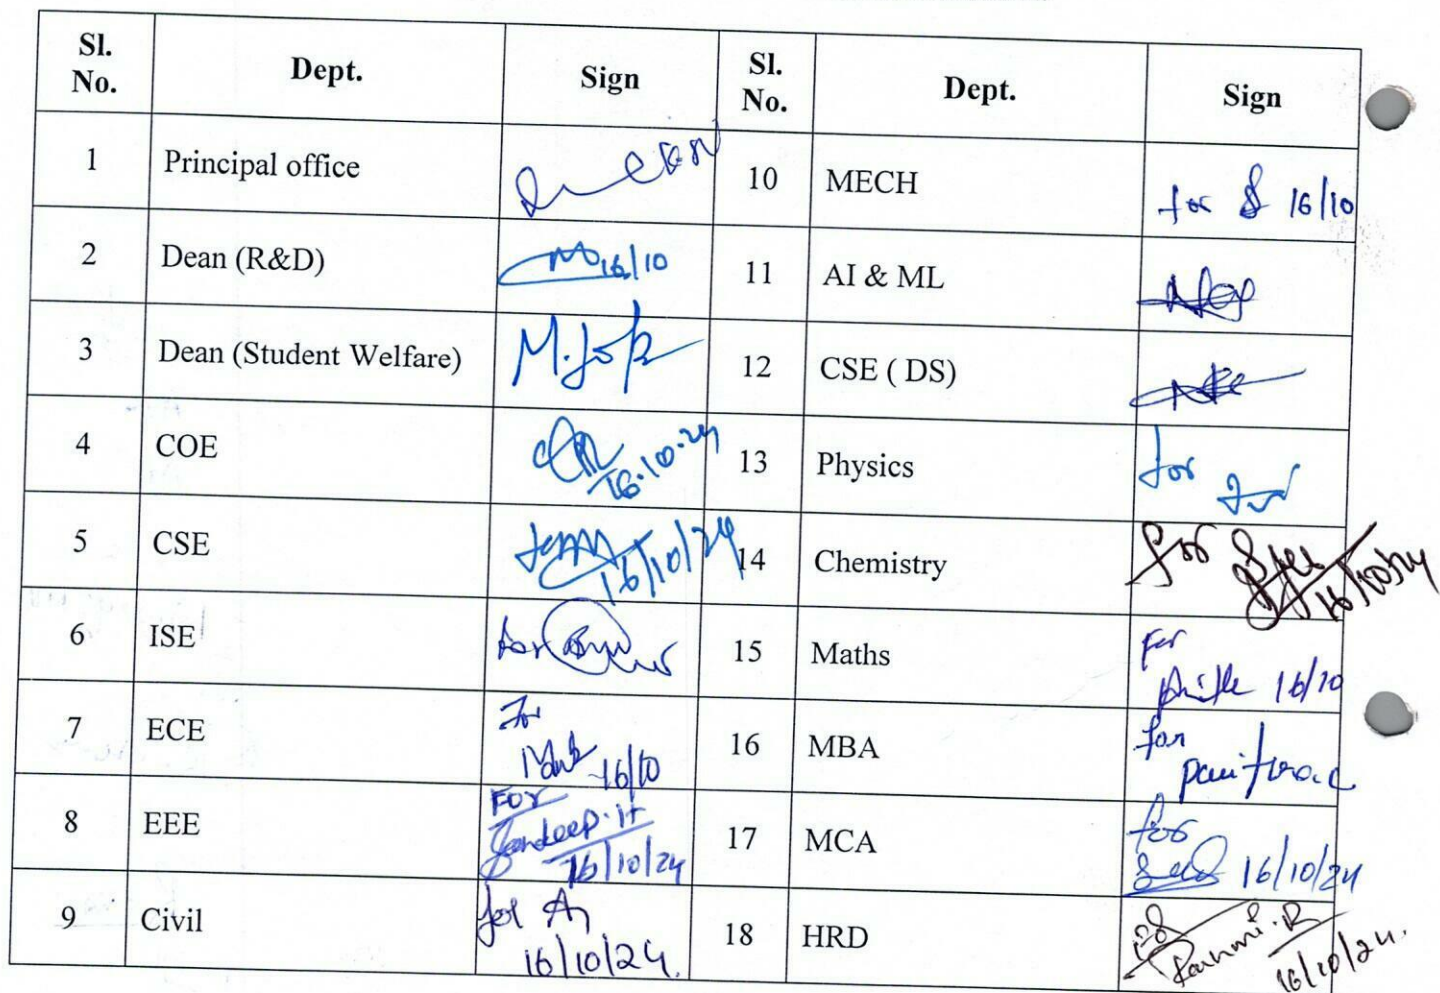 Sl. No. Dept. Sign Sl. No. Dept. Sign
1 Principal office 10 MECH for 16/10
2 Dean (R&D) 16/10 11 AI & ML
3 Dean (Student Welfare) 12 CSE ( DS)
4 COE 16.10.24 13 Physics for
5 CSE 16/10/24 14 Chemistry for 16/10/24
6 ISE for 15 Maths For 16/10
7 ECE For 16/10 16 MBA for
8 EEE For Sandeep 16/10/24 17 MCA for 16/10/24
9 Civil for 16/10/24. 18 HRD 16/10/24.